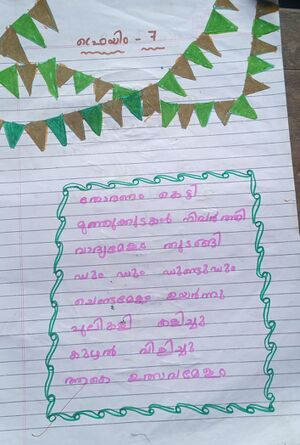 ഫ്രെയിം - 7
തോരണം കെട്ടി
മുത്തുക്കുടകൾ നിവർത്തി
വാദ്യമേളം തുടങ്ങി
ഡും ഡും ഡുണ്ടുഡും
ചെണ്ടമേളം ഉയർന്നു
പുലികളി കളിച്ചു
കുഴൽ വിളിച്ചു
ആകെ ഉത്സവമേളം